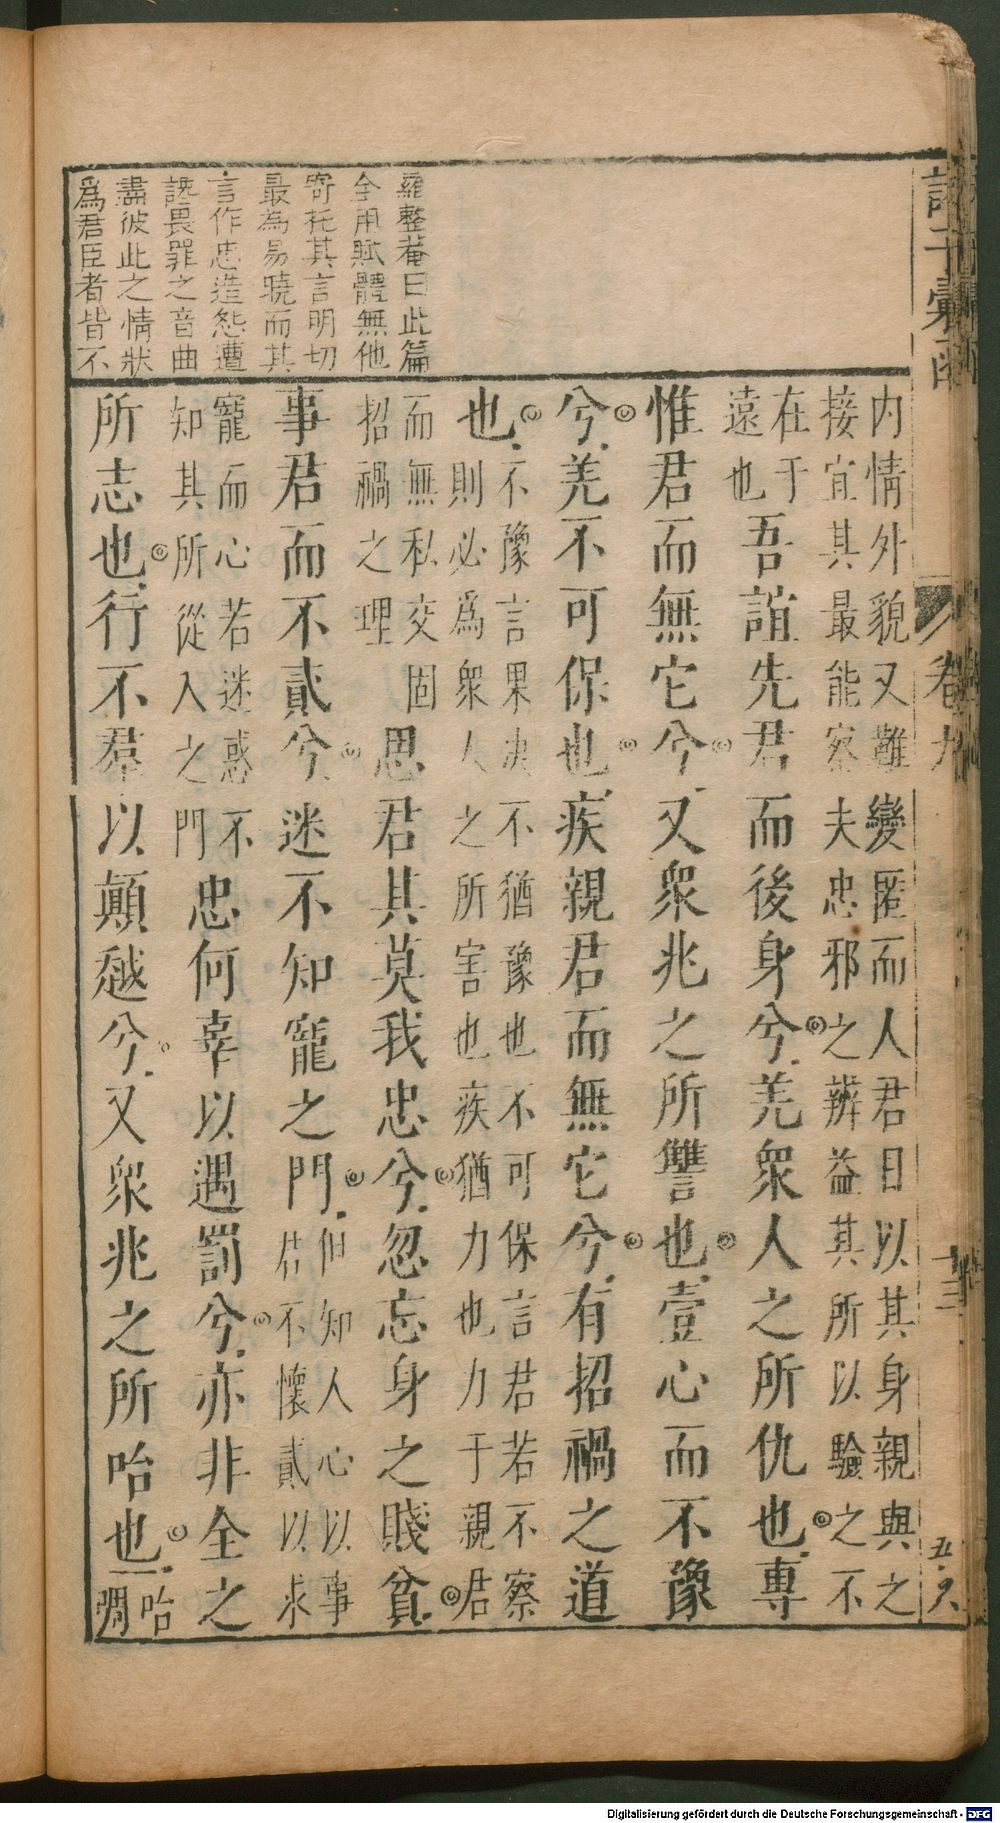 羅整菴曰此篇
全用賦體無他
寄托其言明切
最為易曉而其
言作忠造怨遭
讒畏罪之音曲
盡彼此之情狀
爲君臣者皆不
內情外貌又難變匿而人君日以其身親與之
接宜其最能察夫忠邪之辨益其所以驗之不
在于
遠也
吾誼先君而後身兮羌衆人之所仇也專
惟君而無它兮又衆兆之所讐也壹心而不豫
兮羌不可保也疾親君而無它兮有招禍之道
也
不豫言果决不猶豫也不可保言君若不察
則必爲衆人之所害也疾猶力也力于親君
而無私交固
招禍之理
思君其莫我忠兮忽忘身之賤貧
事君而不貳兮迷不知寵之門
但知人心以事
君不懷貳以求
寵而心若迷惑不
知其所從入之門
忠何辜以遇罰兮亦非全之
所志也行不羣以顛越兮又衆兆之所咍也
咍
啁
卷九
十三
Digitalisierung gefördert durch die Deutsche Forschungsgemeinschaft - DFG